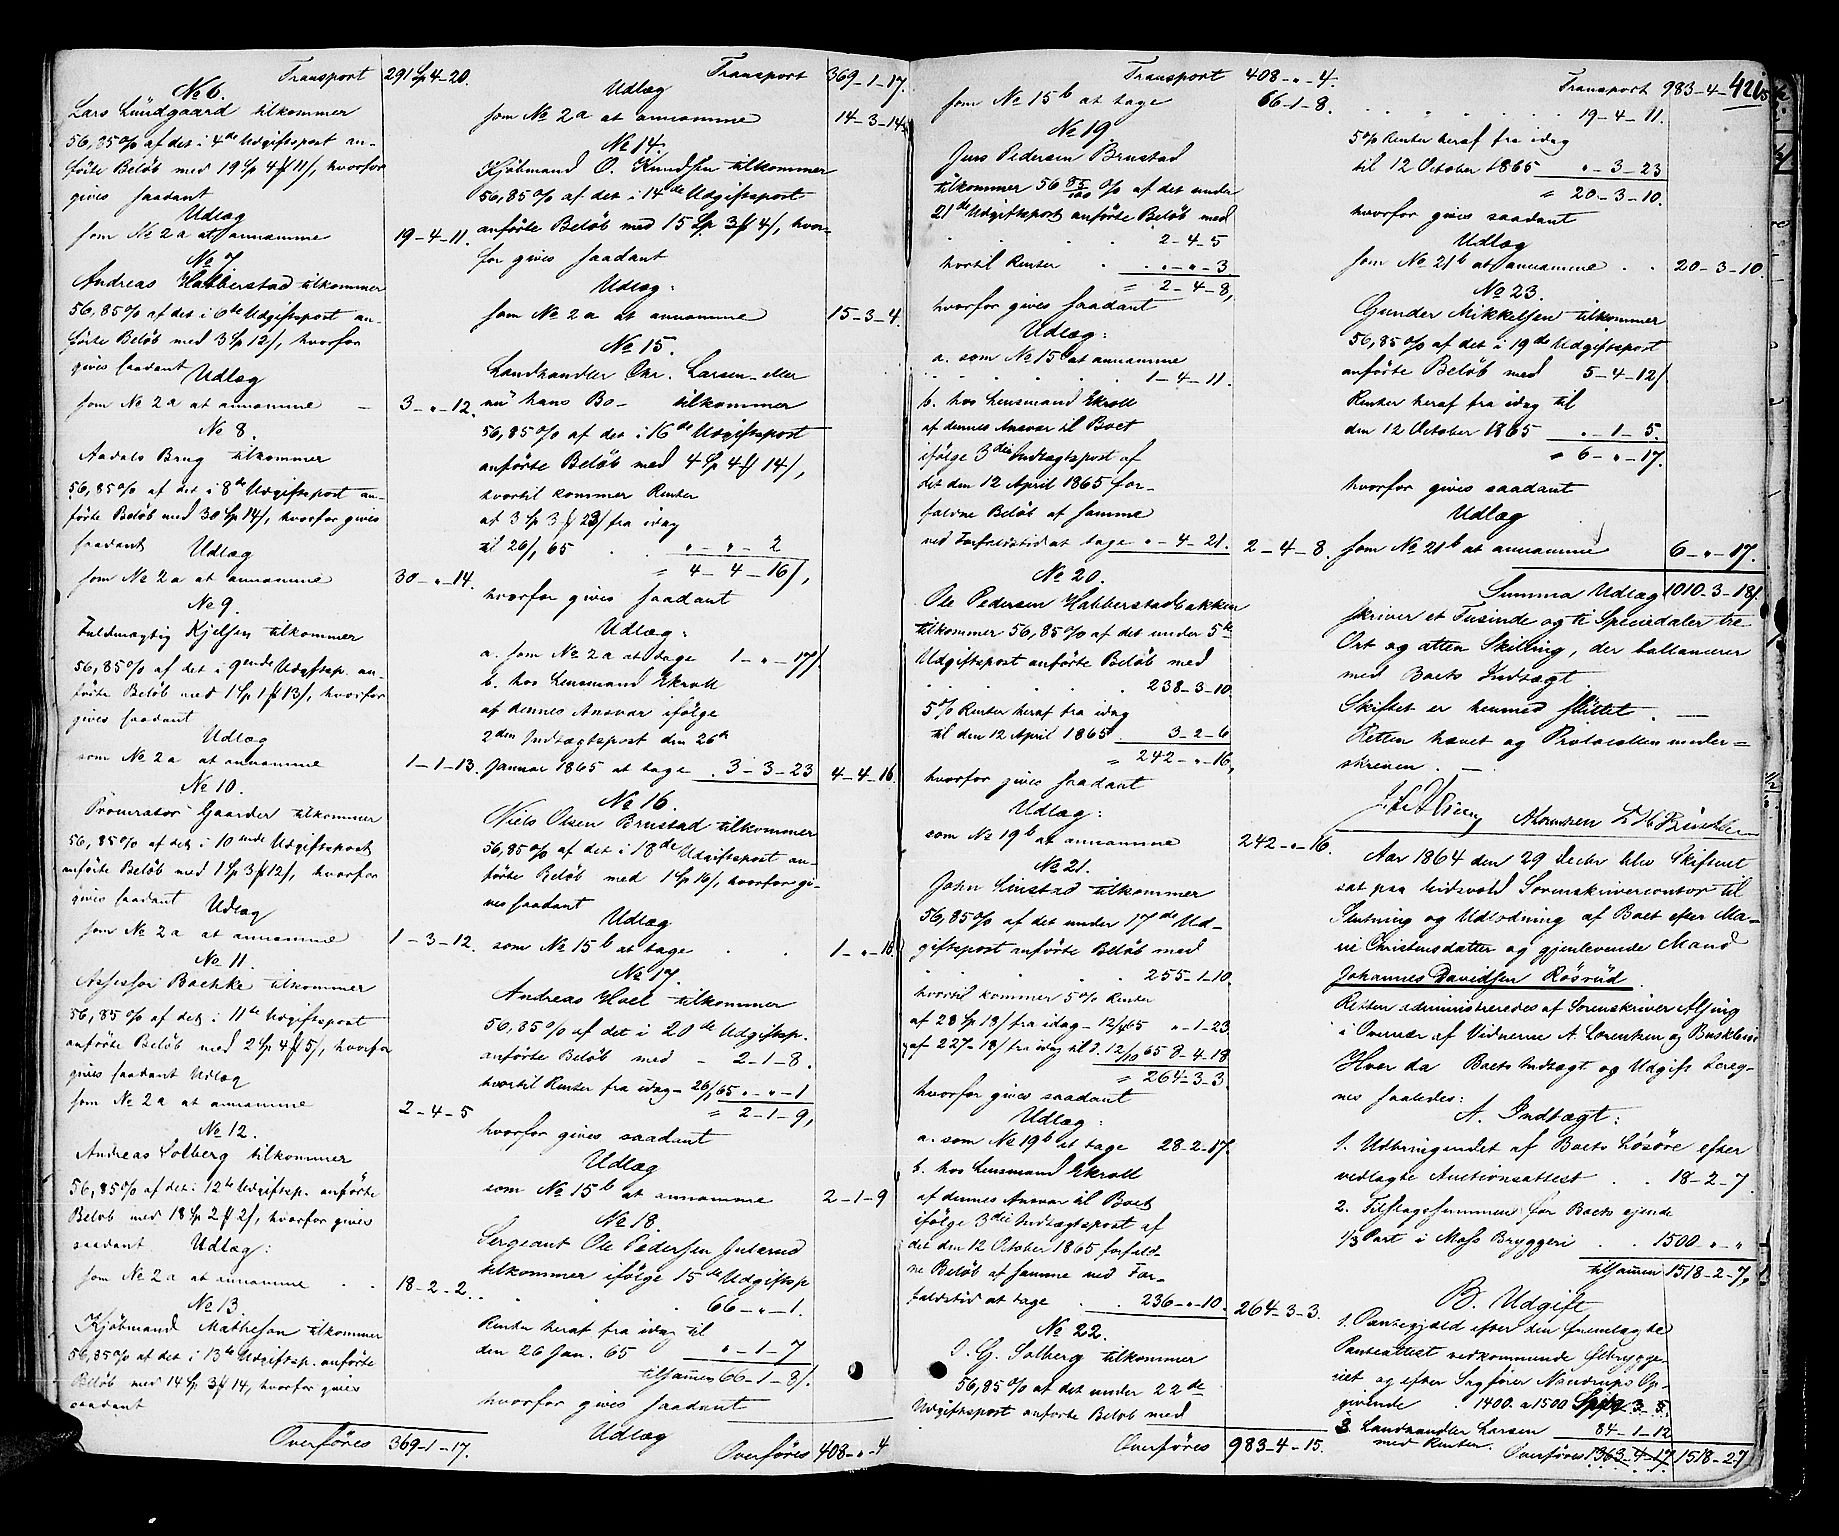 Transport 291 Sp 4-20.
No 6.
Lars Lundgaard tilkommer
56,85% af det i 4de Udgiftspost an-
førte Beløb med 19 Sp 4 # 11/, hvorfor
gives saadant
Udlæg
som No 2a at annamme 19-4-11.
No 7.
Andreas Habberstad tilkommer
56,85% af det i 6te Udgiftspost an-
førte Beløb med 3 Sp 12/, hvorfor
gives saadant
Udlæg
som No 2a at annamme - 3-"-12.
No 8.
Aadals Brug tilkommer
56,85% af det i 8de Udgiftspost an-
førte Beløb med 30 Sp 14/, hvorfor gives
saadant Udlæg
som No 2a at annamme 30-"-14.
No 9.
Fuldmægtig Kjelsen tilkommer
56,85% af det i 9ende Udgiftsp. an-
førte Beløb med 1 Sp 1 # 13/, hvorfor
gives saadant
Udlæg
som No 2a at annamme 1-1-13.
No 10.
Procurator Gaarder tilkommer
56,85% af det i 10ende Udgiftspost
anførte Beløb med 1 Sp 3 # 12/, hvorfor
gives saadant Udlæg
som No 2a at annamme 1-3-12.
No 11.
Assessor Baehke tilkommer
56,85% af det i 11te Udgiftspost
anførte Beløb med 2 Sp 4 # 5/, hvorfor
gives saadant Udlæg
som No 2a at annamme 2-4-5
No 12.
Andreas Solberg tilkommer
56,85% af det i 12te Udgiftsp. anførte
Beløb med 18 Sp 2 # 2/, hvorfor gives
saadant Udlæg:
som No 2a at annamme . . 18-2-2.
No 13.
Kjøbmand Mathesen tilkommer
56,85% af det i 13te Udgiftsp. anførte
Beløb med 14 Sp 3 # 14, hvorfor gives
saadant
Overføres 369-1-17.
Transport 369-1-17.
Udlæg
som No 2a at annamme 14-3-14.
No 14.
Kjøbmand O. Knudsen tilkommer
56,85% af det i 14de Udgiftspost
anførte Beløb med 15 Sp 3 # 4/, hvor-
for gives saadant
Udlæg:
som No 2a at annamme 15-3-4.
No 15.
Landhandler Chr. Larsen - eller
nu hans Bo - tilkommer
56,85% af det i 16de Udgiftspost
anførte Beløb med 4 Sp 4 # 14/,
hvortil kommer Renter
af 3 Sp 3 # 23/ fra idag
til 26/1 65 . . "-"-2
= 4-4-16/,
hvorfor gives saadant
Udlæg:
a. som No 2a at tage 1-"-17/
b. hos Lensmand Ekroll
af dennes Ansvar ifølge
2den Indtægtspost den 26de
Januar 1865 at tage . 3-3-23 4-4-16.
No 16.
Niels Olsen Brustad tilkommer
56,85% af det i 18de Udgiftspost an-
førte Beløb med 1 Sp 16/, hvorfor gi-
ves saadant
Udlæg
som No 15b at tage . . 1-"-16.
No 17.
Andreas Hoel tilkommer
56,85% af det i 20de Udgiftsp.
anførte Beløb med - 2-1-8.
hvortil Renter fra idag - 26/1 65 "-"-1
= 2-1-9,
hvorfor gives saadant
Udlæg
som No 15b at annamme 2-1-9
No 18.
Sergeant Ole Pedersen Julsrud
tilkommer ifølge 15de Udgiftsp
. . . 66-"-1.
Renter heraf fra idag til
den 26 Jan. 65 "-1-7
tilsammen 66-1-8/.
hvorfor gives saadant
Udlæg
Overføres 408-"-4
Transport 408-"-4.
som No 15b at tage 66-1-8.
No 19.
Jens Pedersen Brustad
tilkommer 56 85/100 % af det under
21de Udgiftspost anførte Beløb med
. . . . 2-4-5
hvortil Renter . . "-"-3
= 2-4-8,
hvorfor gives saadant
Udlæg:
a. som No 15b at annamme
. . . . 1-4-11.
b. hos Lensmand Ekroll
af dennes Ansvar til Boet
ifølge 3die Indtægtspost af
det den 12 April 1865 for-
faldne Beløb af samme
ved Forfaldstid at tage "-4-21. 2-4-8.
No 20.
Ole Pedersen Habberstadbakken
tilkommer 56,85% af det under 5te
Udgiftspost anførte Beløb med
. . . . 238-3-10.
5% Renter heraf fra idag
til den 12 April 1865 . 3-2-6
= 242-"-16,
hvorfor gives saadant
Udlæg:
som No 19b at annamme 242-"-16.
No 21.
John Linstad tilkommer
56,85% af det under 17de Ud-
giftspost anførte Beløb med
. . . . 255-1-10.
hvortil kommer 5% Renter
af 28 Sp 18/ fra idag - 12/4 65 "-1-23
af 227-18/ fra idag til d. 12/10 65 8-4-18
= 264-3-3
hvorfor gives saadant
Udlæg:
a. som No 19b at tage 28-2-17.
b. hos Lensmand Ekroll
af dennes Ansvar til Boet
ifølge 3die Indtægtspost af
det den 12 October 1865 forfald-
ne Beløb af samme ved For-
faldstid at tage . . 236-"-10. 264-3-3.
No 22.
G. Solberg tilkommer
56,85% af det under 22de
Udgiftspost anførte Beløb med
Overføres 983-4-15.
421
Transport 983-4-15
. . . . 19-4-11.
5% Renter heraf fra idag
til 12 October 1865 "-3-23
= 20-3-10.
hvorfor gives saadant
Udlæg
som No 21b at annamme . . 20-3-10.
No 23.
Gunder Mikkelsen tilkommer
56,85% af det i 19de Udgiftspost
anførte Beløb med 5-4-12/
Renter heraf fra idag til
den 12 October 1865 "-1-5.
= 6-"-17.
hvorfor gives saadant
Udlæg
som No 21b at annamme 6-"-17.
Summa Udlæg 1010-3-18/.
skriver et Tusinde og ti Speciedaler tre
Ort og atten Skilling, der ballancerer
med Boets Indtægt
Skiftet er hermed sluttet. -
Retten hævet og Protocollen under-
skreven. -
Alorentzen
Aar 1864 den 29 Decbr blev Skifteret
sat paa Eidsvold Sorenskrivercontor til
Slutning og Udlodning af Boet efter Ma-
rie Christensdatter og gjenlevende Mand
Johannes Davidsen Røsrud.
Retten administreredes af Sorenskriver Alsing
i Overvær af Vidnerne A. Lorentzen og Busklein
Hver da Boets Indtægt og Udgift bereg-
nes saaledes:
A. Indtægt:
1. Udbringendet af Boets Løsøre efter
vedlagte Auctionsattest . . 18-2-7.
2. Tilslagssummen for Boets ejende
1/3 Part i Moss Bryggeri . . 1500-"-"
tilsammen 1518-2-7,
B. Udgift
1. Pantegjæld efter den fremlagte
Panteattest vedkommende Ølbrygge-
riet og efter Sagfører Nandrups Op-
givende . 1400 a 1500 Spd
3. Landhandler Larsen 84-1-12
med Renter.
Overføres 1363-4-17 1518-2-7